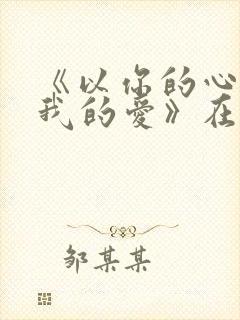 《以你的心
我的爱》在
邹某某